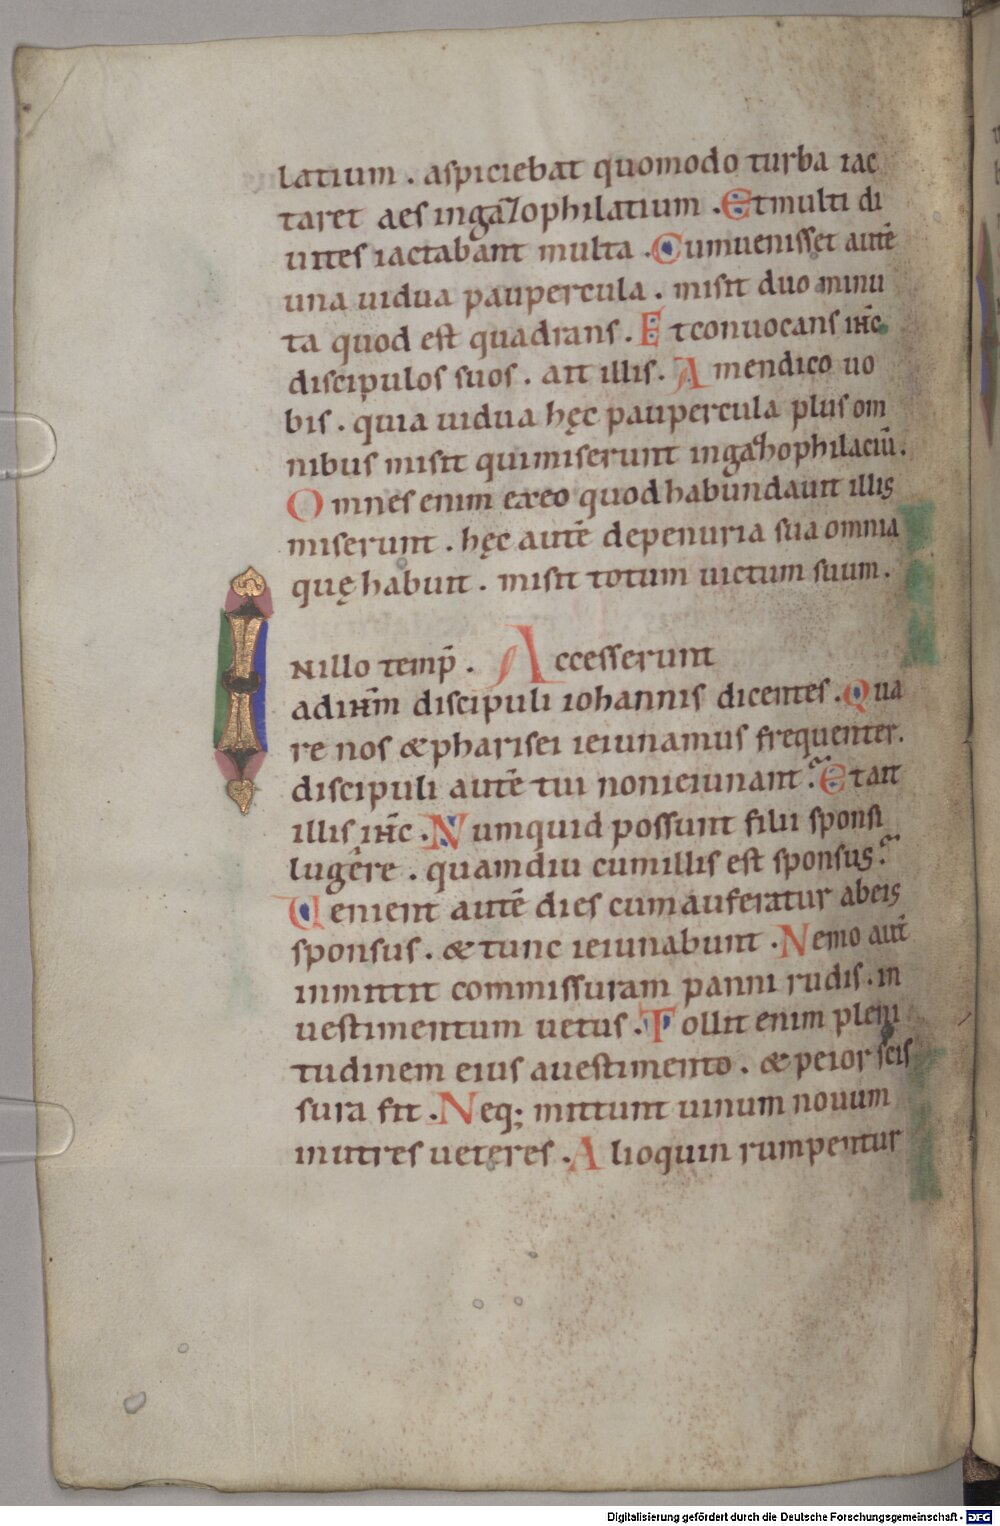 latium . aspiciebat quomodo turba iac
taret aes in gazophilatium . Et multi di
uites iactabant multa . Cum uenisset autē
una uidua paupercula . misit duo minu
ta quod est quadrans . Et conuocans ihc̄
discipulos suos . ait illis . Amen dico uo
bis . quia uidua hęc paupercula plus om
nibus misit qui miserunt in gazhophilaciū .
Omnes enim ex eo quod habundauit illis
miserunt . hęc autē de penuria sua omnia
quę habuit . misit totum uictum suum .
IN illo temp̄ . Accesserunt
ad ihm̄ discipuli iohannis dicentes . Qua
re nos & pharisei ieiunamus frequenter .
discipuli autē tui non ieiunant ? Et ait
illis ihc̄ . Numquid possunt filii sponsi
lugere . quamdiu cum illis est sponsus ?
Uenient autē dies cum auferatur ab eis
sponsus . & tunc ieiunabunt . Nemo aut̄
inmittit commissuram panni rudis . in
uestimentum uetus . Tollit enim pleni
tudinem eius a uestimento . & peior scis
sura fit . Neq; mittunt uinum nouum
in utres ueteres . Alioquin rumpentur
Digitalisierung gefördert durch die Deutsche Forschungsgemeinschaft - DFG